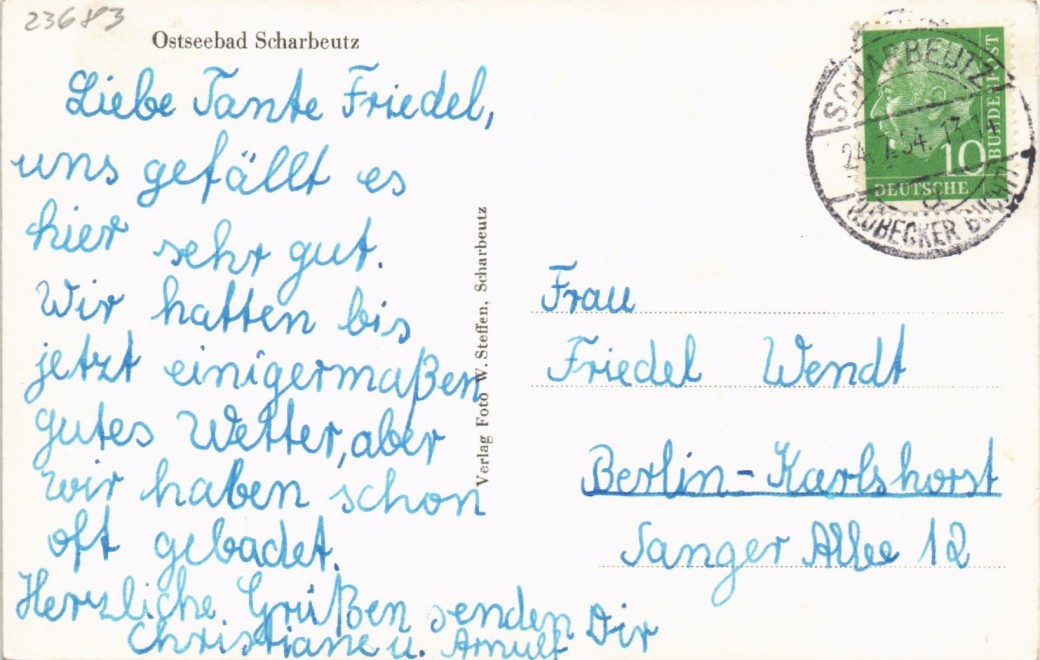 23683
Ostseebad Scharbeutz
Liebe Tante Friedel,
uns gefällt es
hier sehr gut.
Wir hatten bis
jetzt einigermaßen
gutes Wetter, aber
wir haben schon
oft gebadet.
Herzliche Grüßen senden Dir
Christiane u. Arnulf
Verlag Foto W. Steffen, Scharbeutz
SCHARBEUTZ
24.7.54.
LÜBECKER BUCHT
10
DEUTSCHE
BUNDESPOST
Frau
Friedel Wendt
Berlin-Karlshorst
Sanger Allee 12